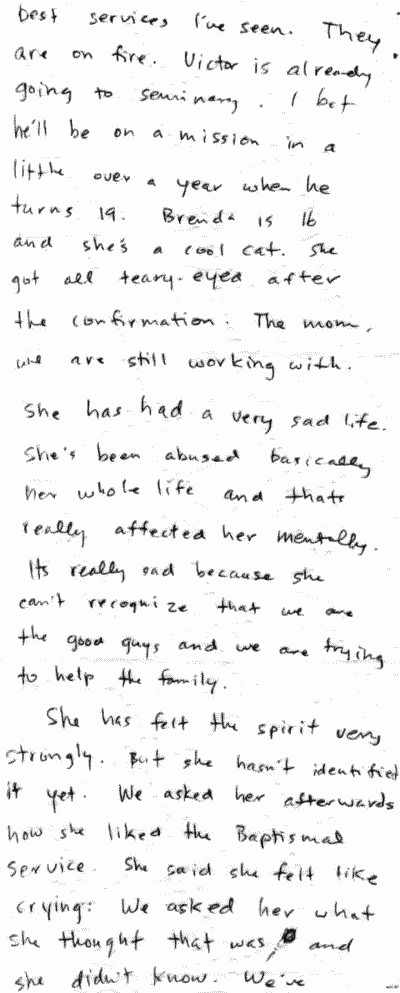 best services I've seen. They
are on fire. Victor is already
going to seminary. I bet
he'll be on a mission in a
little over a year when he
turns 19. Brenda is 16
and she's a cool cat. She
got all teary-eyed after
the confirmation. The mom,
we are still working with.
She has had a very sad life.
She's been abused basically
her whole life and thats
really affected her mentally.
Its really sad because she
can't recognize that we are
the good guys and we are trying
to help the family.
She has felt the spirit very
strongly. But she hasn't identified
it yet. We asked her afterwards
how she liked the Baptismal
Service. She said she felt like
crying. We asked her what
she thought that was and
she didn't know. We've